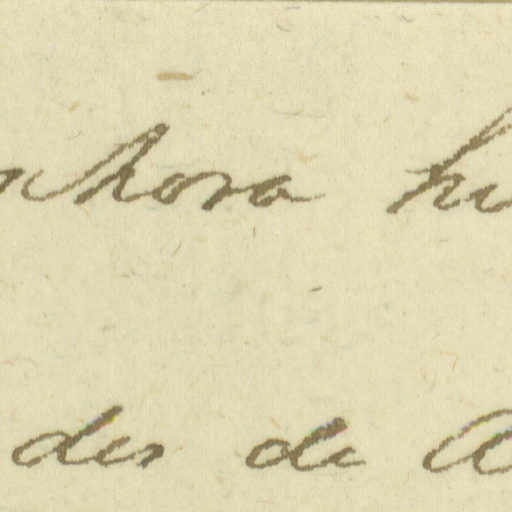 nhora
des de